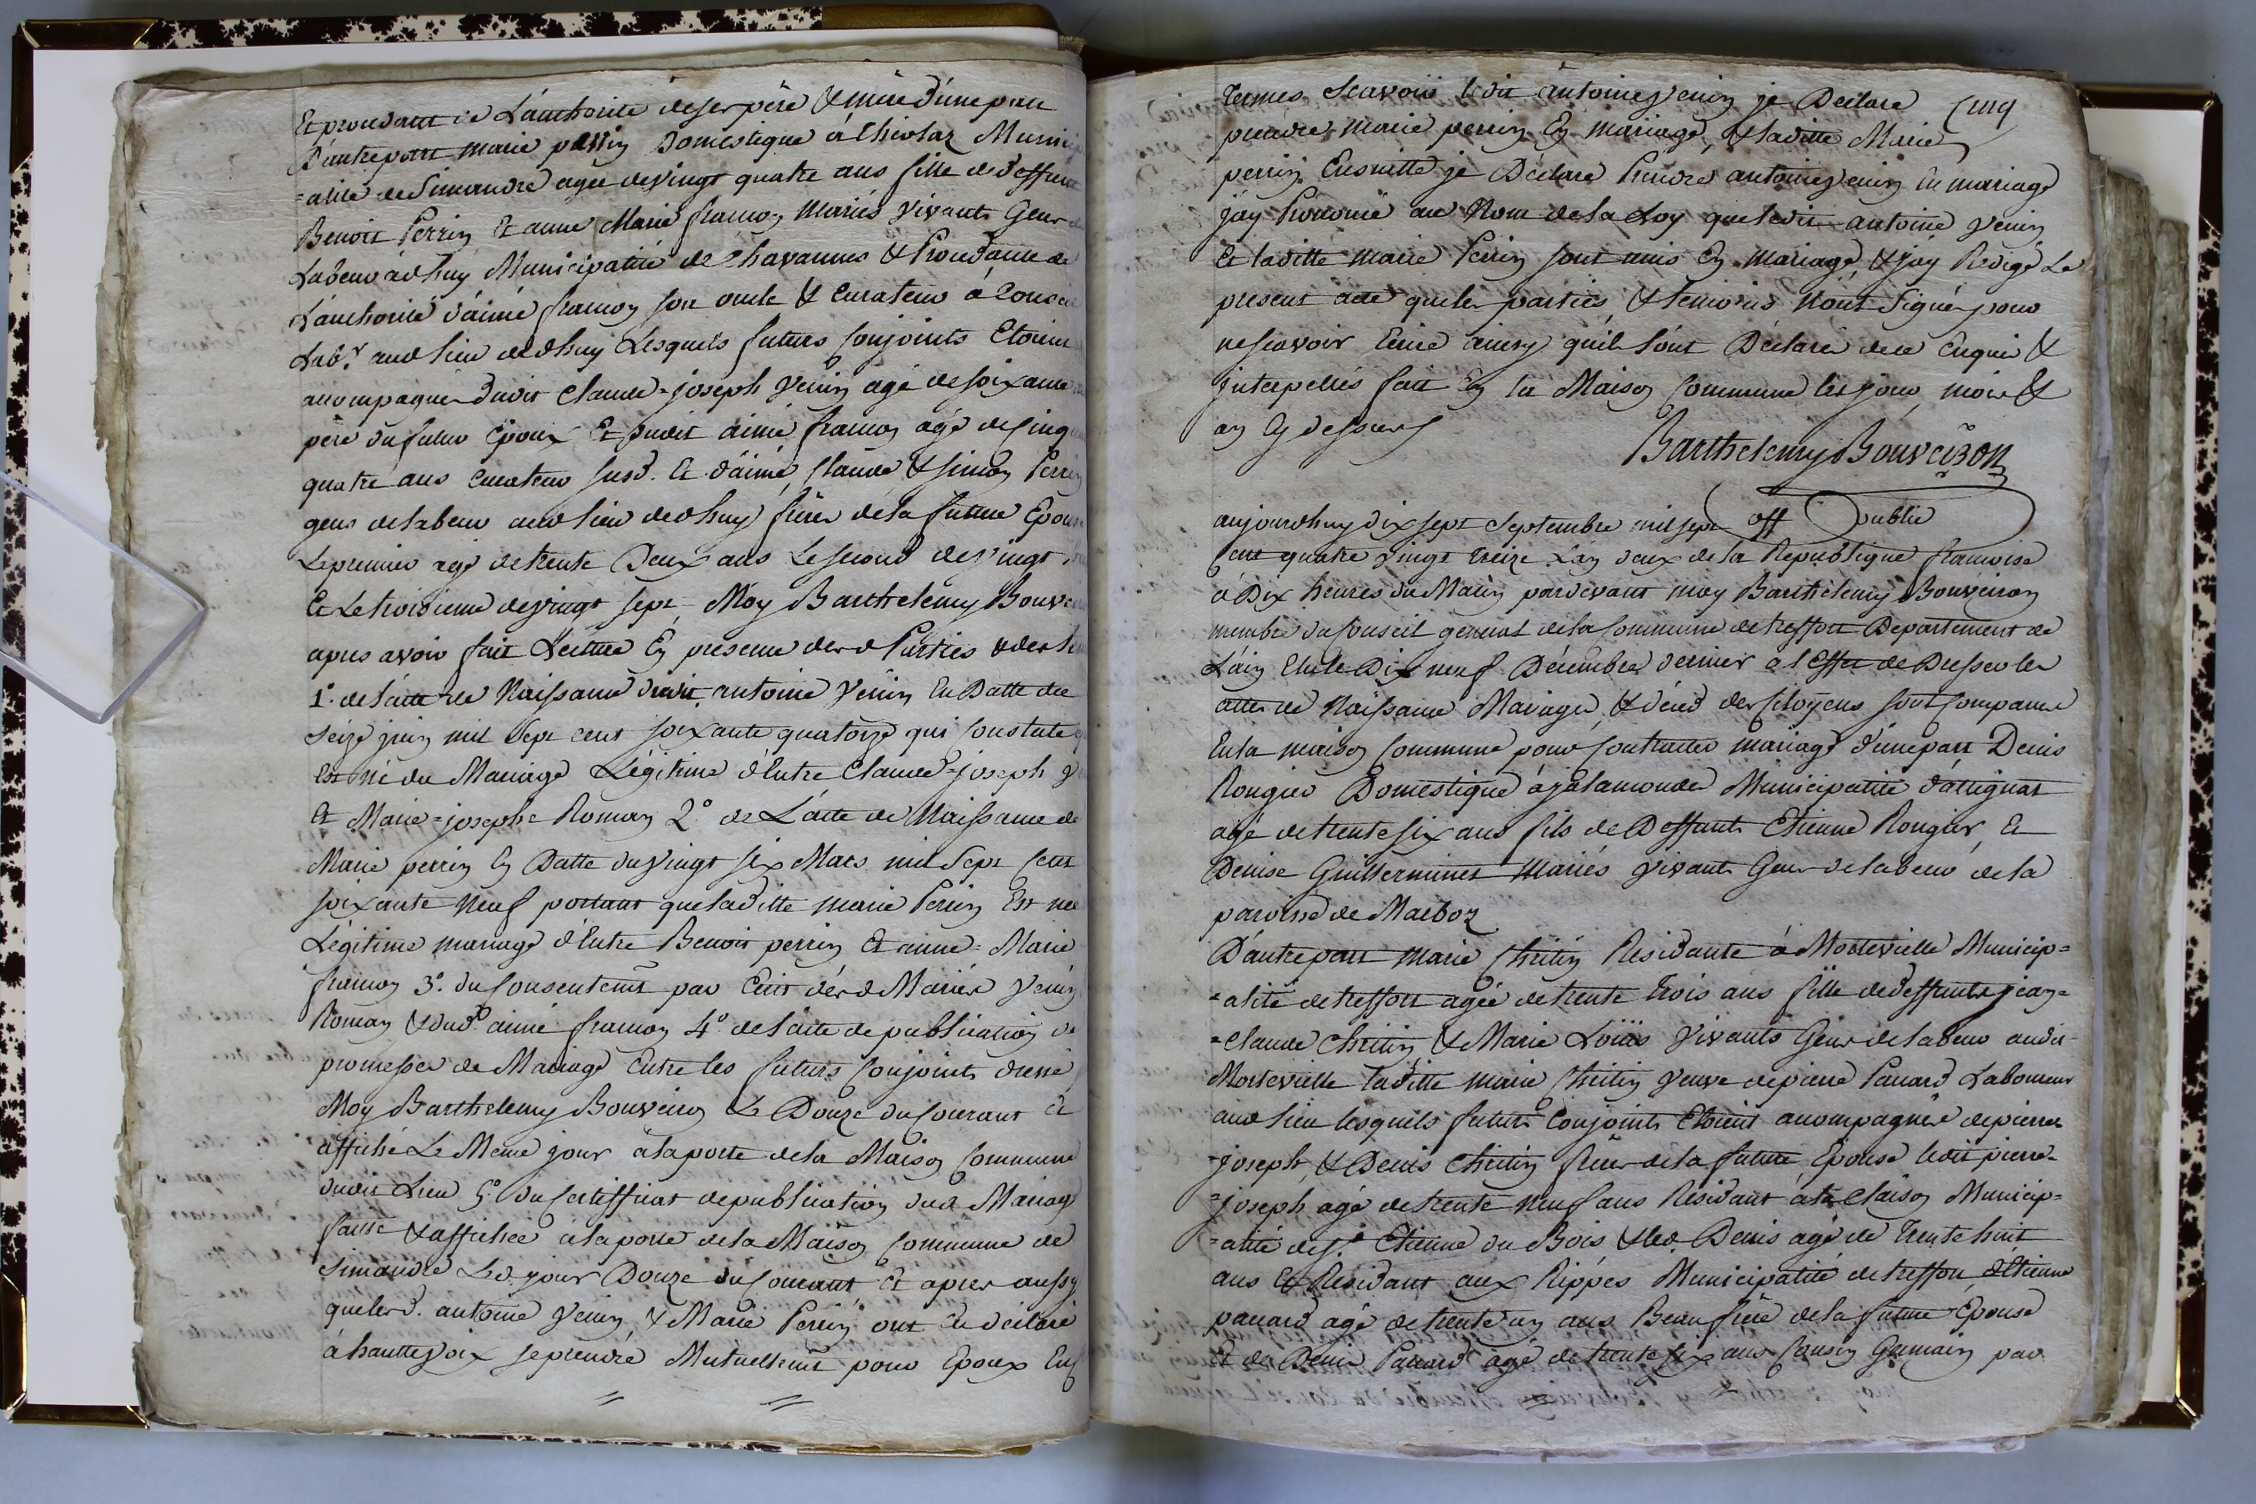 Et procedant de L'authorité de ses père & mère d'une part
D'autre part marie perrin Domestique à Chiolaz Munici
=alité de Simandre agée de vingt quatre ans fille de deffunt
Benoit Perrin Et anne Marie framon Mariés vivants Gens de
Labeur à dhuy Municipalité de Chavannes & Procédante de
L'authorité d'aimé framon son oncle & Curateur à Conseil
Lab.r aud lieu de dhuy Lesquels futurs Conjoints Etoient
accompagnés dudit Claude=joseph venin agé de soixante
père du futur Epoux Et dudit aimé framon agé de cinqu
quatre ans curateur susd. Et d'aimé, Claude & simon Perrin
gens de labeur aud lieu de dhuy frères de la future Epouse
Le premier agé de trente Deux ans Le second de vingt
Et Le troisieme de vingt sept, Moy Barthelemy Bouve
apres avoir fait Lecture En presence desd Parties & des
1°. de l'acte de Naissance dudit antoine venin En Datte du
seize juin mil sept cent soixante quatorze qui constate
Est né du Mariage Légitime d'Entre Claude=joseph v
Et Marie=josephe Roman 2° de L'acte de Naissance de
Marie perrin En Datte du vingt six Mars mil sept cent
soixante Neuf portant que laditte marie Perrin Est née
Légitime mariage d'Entre Benoit perrin Et anne=Marie
framon 3°. du Consentemt par Ecrit desd Mariés venin
Roman & dud aimé framon 4° de l'acte de publication de
promesses de Mariage Entre les futurs Conjoints dressé
Moy Barthelemy Bouveiron Le Douze du Courant Et
affiché Le Meme jour à la porte de la Maison Commune
dudit Lieu 5° du Certifficat de publication dud Mariage
faitte & affichée à la porte de la Maison Commune de
Simandre Led. jour Douze du Courant, Et apres aussy
que lesd. antoine venin, & Marie Perrin ont Eu déclaré
à hautte voix se prendre Mutuellemt pour Epoux En
Cinq
termes Scavoir ledit antoine venin je Déclare
prendre marie perrin En mariage, & laditte Marie
perrin Ensuitte je Déclare Prendre antoine venin En mariage
j'ay Prononcé au Nom de la Loy que ledit antoine venin
Et laditte marie Perrin sont unis En mariage, & j'ay Redigé Le
present acte que les parties, & temoins N'ont Signé pour
ne scavoir Ecrire ainsy qu'ils l'ont Déclaré de ce Enquis &
interpellés fait En la Maison Commune les jour, mois &
an Cy dessus
Barthelemy Bouveiron
off public
aujourdhuy dix sept Septembre mil sept
cent quatre vingt treize L'an deux de la Republique francoise
à Dix heures du Matin pardevant moy Barthelemy Bouveiron
membre du Conseil general de la Commune de treffort Departement de
L'ain Elu le Dix neuf Décembre dernier à l'Effet de Dresser les
actes de Naissance Mariage, & décès des Citoyens sont Comparus
En la maison Commune pour Contracter mariage d'une part Denis
Rougier Domestique à jalamonde Municipalité d'attignat
agé de trente six ans fils de Deffunts Etienne Rougier, Et
Denise Guillerminet Mariés vivants Gens de labeur de la
paroisse de Marboz
D'autre part Marie Chritin Residante à Mortevielle Municip=
=alité de treffort agée de trente trois ans fille de deffunts jean=
=Claude Chritin, & Marie Loüis vivants Gens de labeur audit
Mortevielle laditte marie Chritin veuve de pierre Panard Laboureur
aud lieu lesquels futurs Conjoints Etoient accompagnés de pierre
=joseph, & Denis Chritin frères de la future Epouse ledit pierre=
=joseph agé de trente neuf ans Résidant à la Claison Municip=
=alité de st Etienne du Bois & led. Denis agé de Trente huit
ans Et Residant aux Rippes Municipalité de treffort d'Etienne
panard agé de trente un ans Beau frère de la future Epouse
Et de Denis Panard agé de trente six ans Cousin Germain par